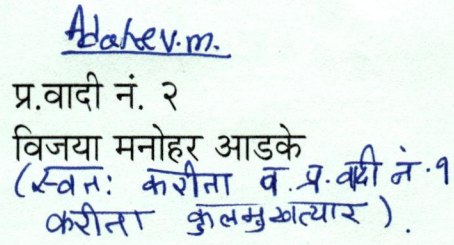 Adake v.m.
प्र.वादी नं. २
विजया मनोहर आडके
(स्वतः करीता व प्र.वादी नं.१
करीता कुलमुखत्यार).